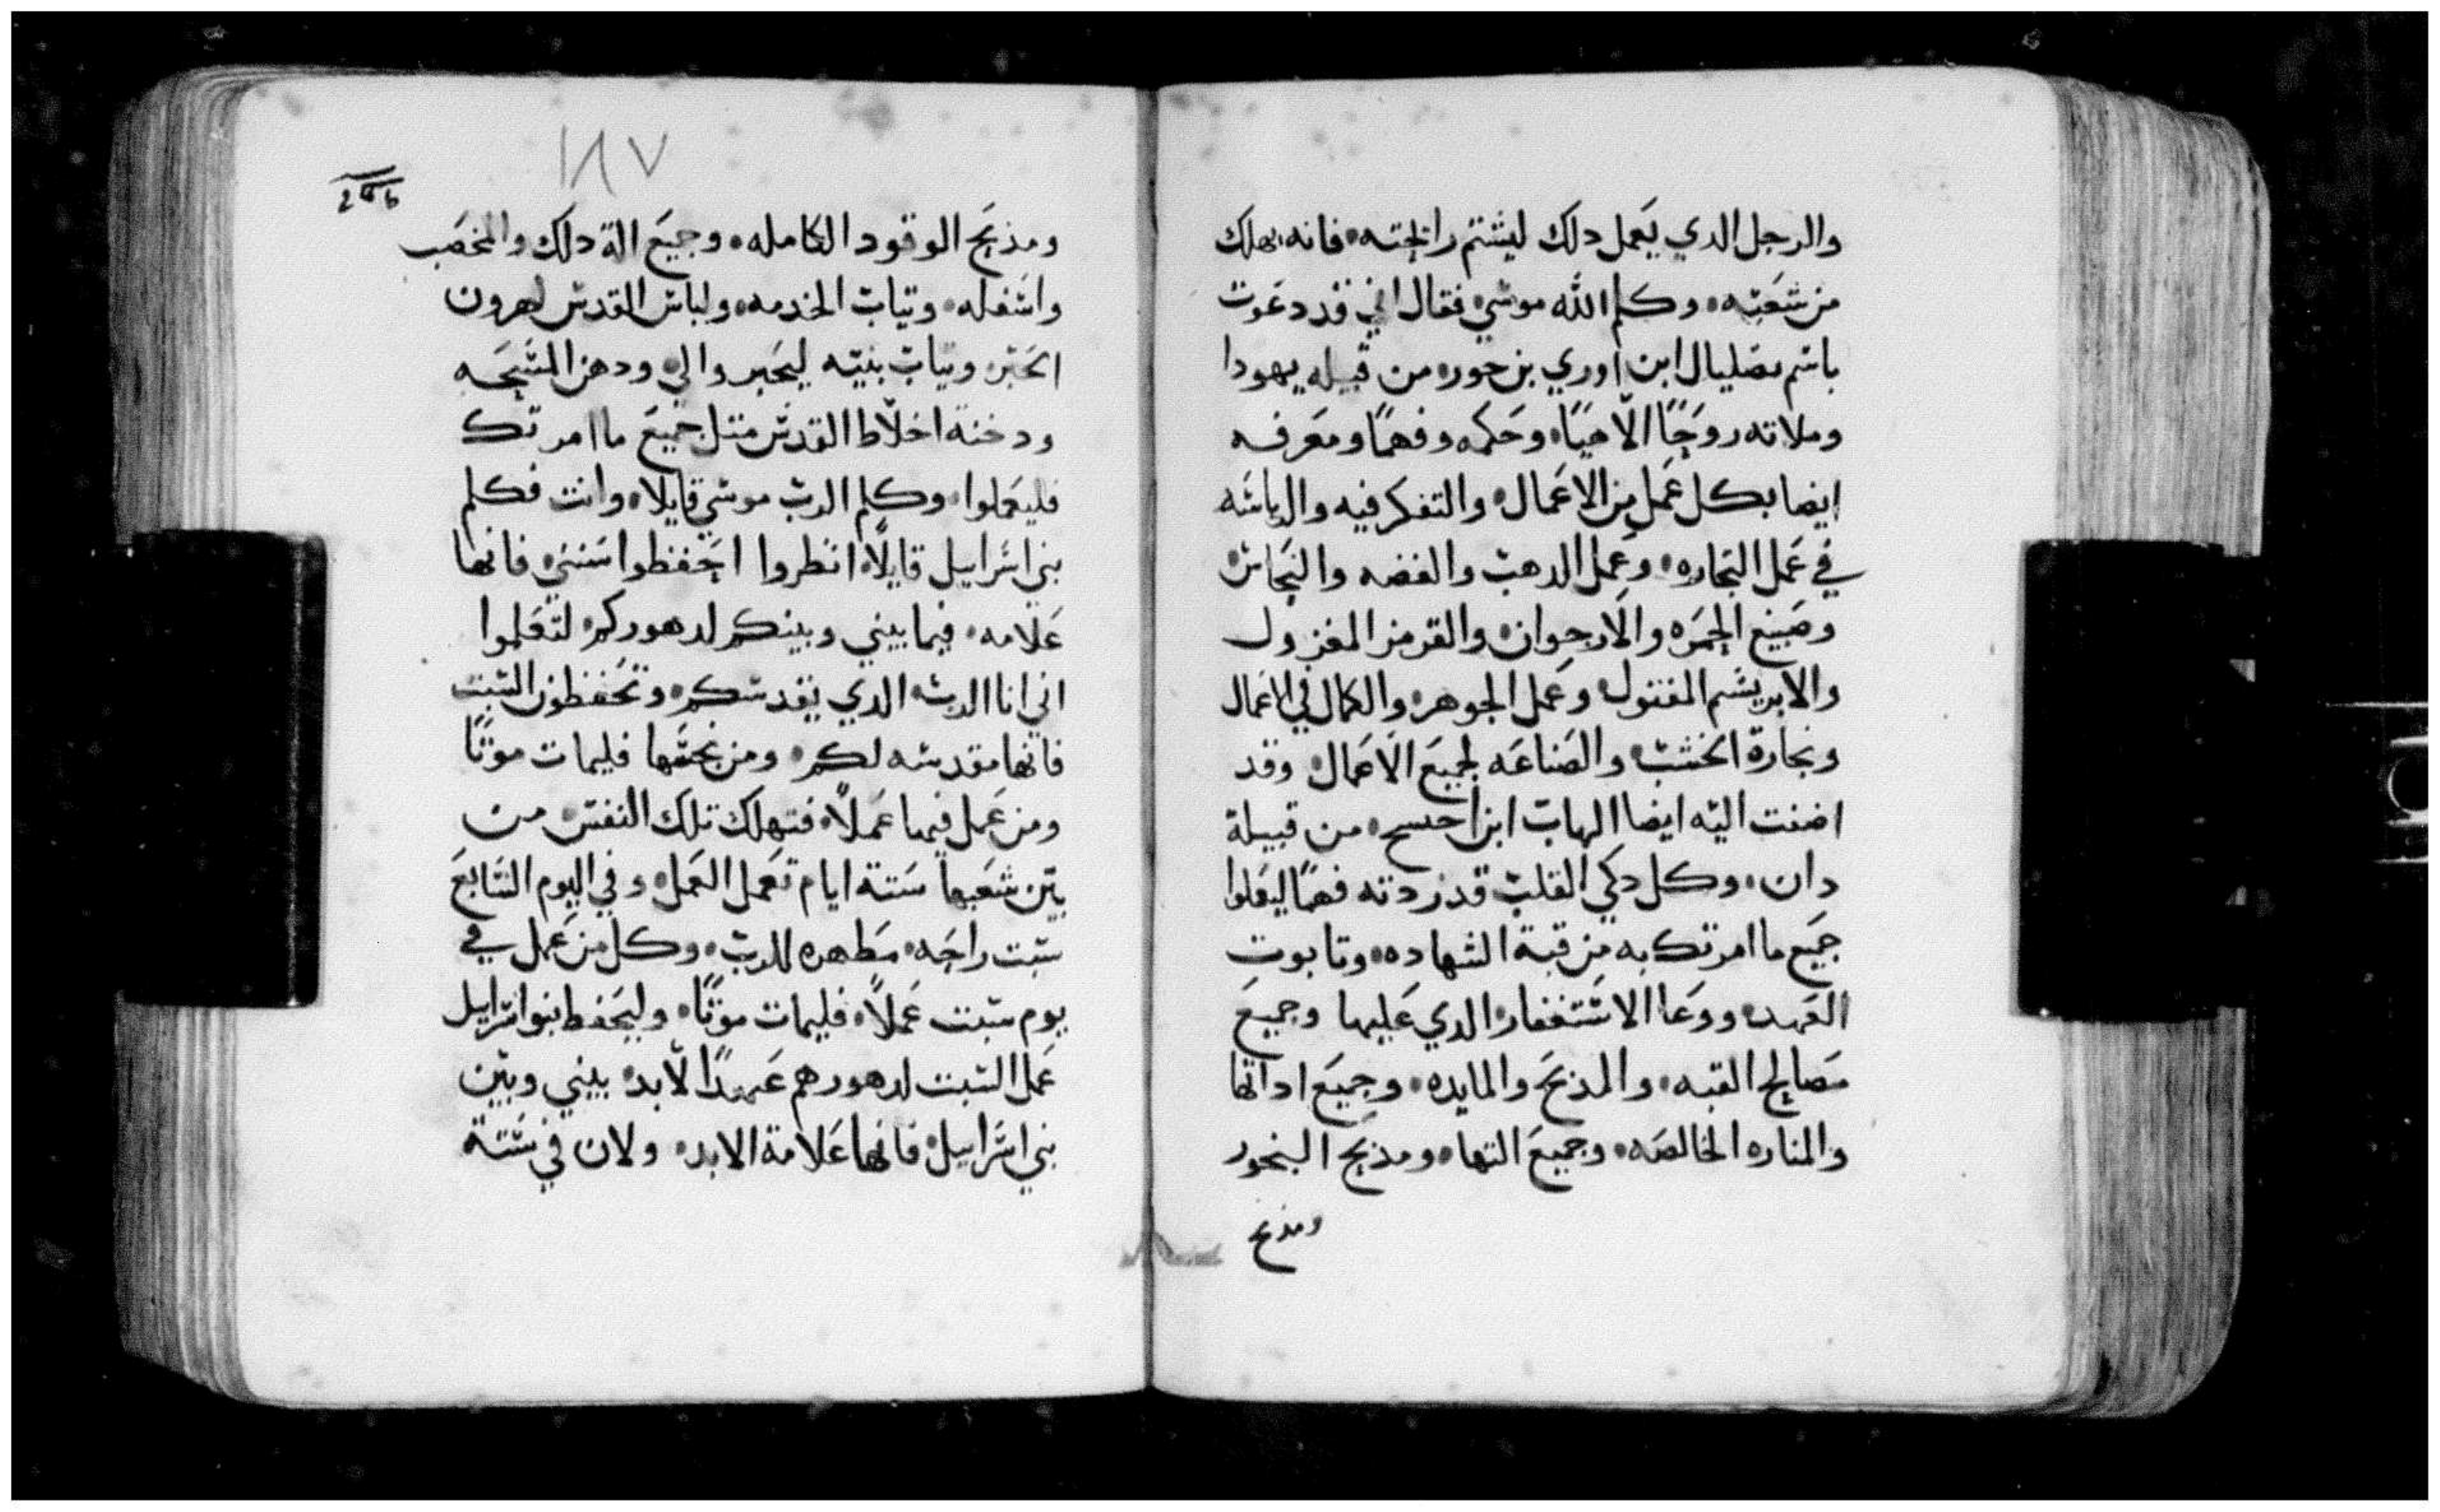 والرجل الدي يعمل دلك ليشتم رايحته، فانه يهلك
من شعبه، وكلم الله موسي، فقال اني قد دعوت
باسم بصليال ابن اوري بن حور، من قبيله يهودا
وملاته روحًا الاهيًا، وحكمه وفهمًا ومعرفه
ايضا بكل عمل من الاعمال، والتفكر فيه والرياسه
في عمل النجاره، وعمل الدهب والفضه والنحاس
وصبيغ الحمره والارجوان، والقرمز المغزول
والابريشم المفتول، وعمل الجوهر، والكمال في الاعمال
ونجارة الخشب، والصناعه لجميع الاعمال، وقد
اضفت اليه ايضا الهاب ابن من قبيلة
دان، وكل دكي القلب قد زدته فهمًا ليعملوا
جميع ما امرتك به من قبة الشهاده، وتابوت
العهد، ووعا الاستغفار، الدي عليها وجميع
مصالح القبه، والمذبح والمايده، وجميع اداتها
والمناره الخالصه، وجميع التها، ومذبح البخور
ومذبح
١٨٧
ومذبح الوقود الكامله، وجميع الة دلك والمخضب
واسفله، وتياب الخدمه، ولباس القدس لهرون
الحبر، وتياب بنيه ليحبروا لي، ودهن المسحه
ودخنة اخلاط القدس متل جميع ما امرتك
فليعملوا، وكلم الرب موسي قايلا، وانت فكلم
بني اسراييل قايلاً، انظروا احفظوا سنني، فانها
علامه، فيما بيني وبينكم لدهوركم، لتعلموا
اني انا الرب، الدي يقدسكم، وتحفظون السبت
فانها مقدسه لكم، ومن نجسها فليمات موتًا
ومن عمل فيها عملاً، فتهلك تلك النفس من
بين شعبها ستة ايام تعمل العمل، وفي اليوم السابع
سبت راحه، مطهره للرب، وكل من عمل في
يوم سبت عملاً، فليمات موتًا، وليحفظ بنو اسراييل
عمل السبت لدهورهم عهدًا لابد، بيني وبين
بني اسراييل، فانها علامة الابد، ولان في ستة